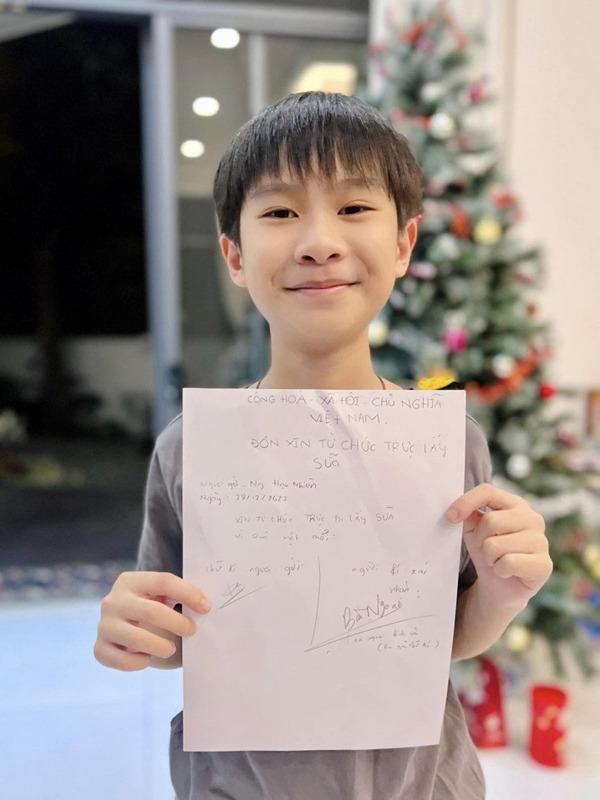 CỘNG HOÀ - XÃ HỘI - CHỦ NGHĨA
VIỆT NAM.
ĐƠN XIN TỪ CHỨC TRỰC LẤY
SỮA
Người gửi: Ng Hạo Nhiên
Ngày: 28/12/2023
XIN TỪ CHỨC TRỰC ĐI LẤY SỮA
vì quá mệt mỏi
chữ kí người gửi
người kí xác
nhận:
Bà Ngoại